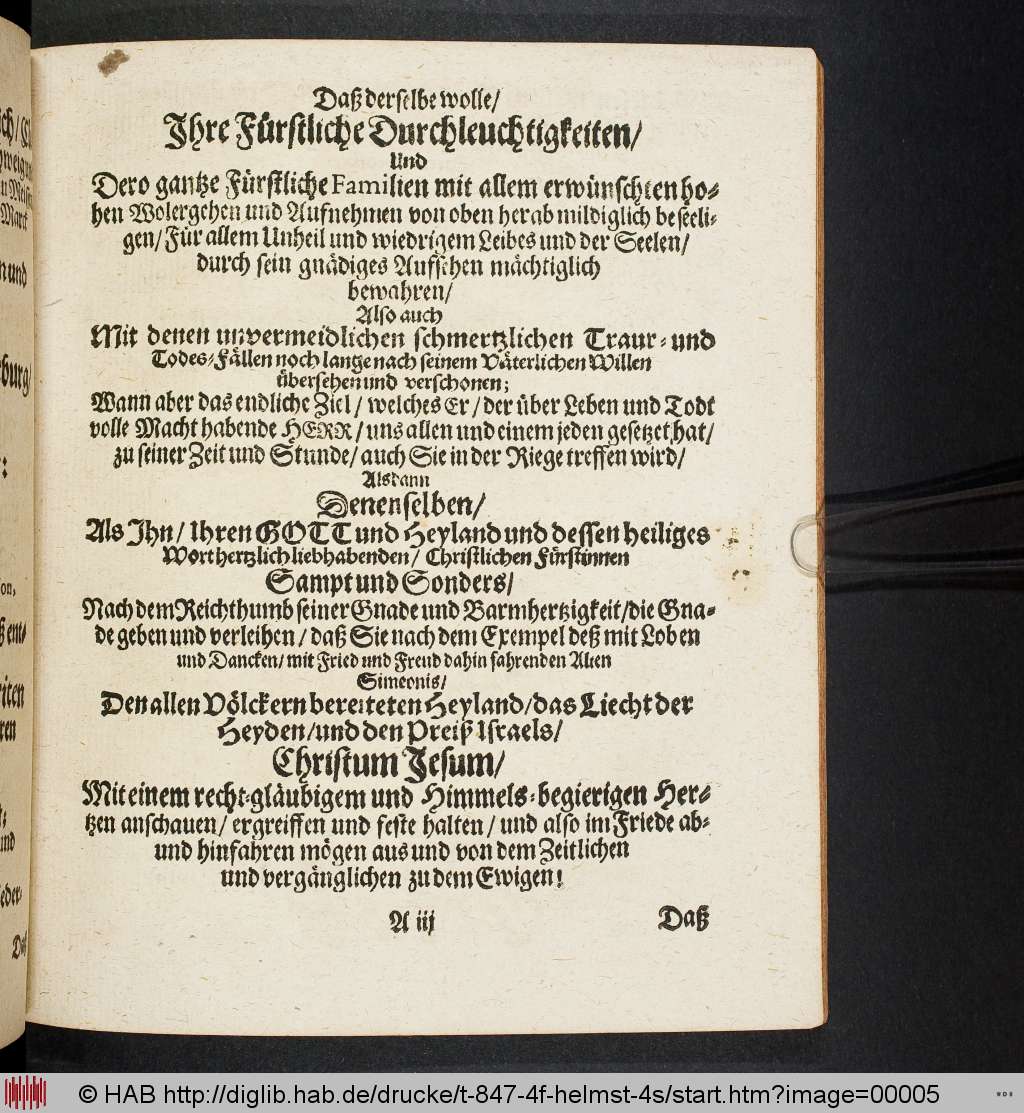 Daß derselbe wolle/
Ihre Fürstliche Durchleuchtigkeiten/
Und
Dero gantze Fürstliche Familien mit allem erwünschten ho-
hen Wolergehen und Aufnehmen von oben herab mildiglich beseeli-
gen/ Für allem Unheil und wiedrigem Leibes und der Seelen/
durch sein gnädiges Aufsehen mächtiglich
bewahren/
Also auch
Mit denen unvermeidlichen schmertzlichen Traur- und
Todes-Fällen noch lange nach seinem Väterlichen Willen
übersehen und verschonen;
Wann aber das endliche Ziel/ welches Er/ der über Leben und Todt
volle Macht habende HERR/ uns allen und einem jeden gesetzet hat/
zu seiner Zeit und Stunde/ auch Sie in der Riege treffen wird/
Alsdann
Denenselben/
Als Ihn/ Ihren GOTT und Heyland und dessen heiliges
Wort hertzlich liebhabenden/ Christlichen Fürstinnen
Sampt und Sonders/
Nach dem Reichthumb seiner Gnade und Barmhertzigkeit/ die Gna-
de geben und verleihen/ daß Sie nach dem Exempel deß mit Loben
und Dancken/ mit Fried und Freud dahin fahrenden Alten
Simeonis/
Den allen Völckern bereiteten Heyland/ das Liecht der
Heyden/ und den Preiß Israels/
Christum Jesum/
Mit einem recht-gläubigem und Himmels-begierigen Her-
tzen anschauen/ ergreiffen und feste halten/ und also im Friede ab-
und hinfahren mögen aus und von dem Zeitlichen
und vergänglichen zu dem Ewigen!
A iij Daß
© HAB http://diglib.hab.de/drucke/t-847-4f-helmst-4s/start.htm?image=00005